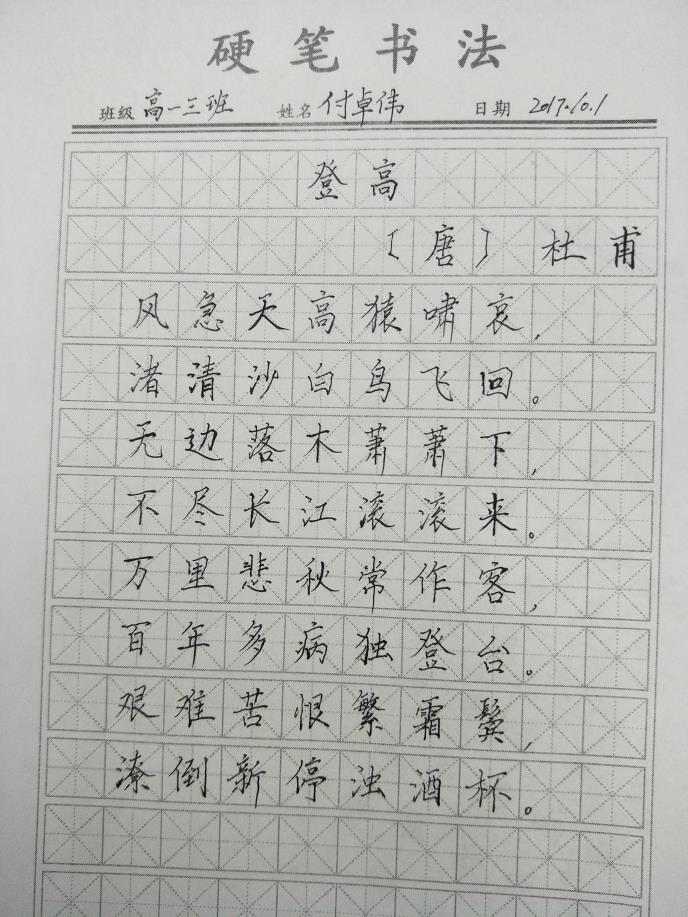 硬笔书法
班级 高一三班 姓名 付卓伟 日期 2017.10.1
登高
〔唐〕杜甫
风急天高猿啸哀，
渚清沙白鸟飞回。
无边落木萧萧下，
不尽长江滚滚来。
万里悲秋常作客，
百年多病独登台。
艰难苦恨繁霜鬓，
潦倒新停浊酒杯。